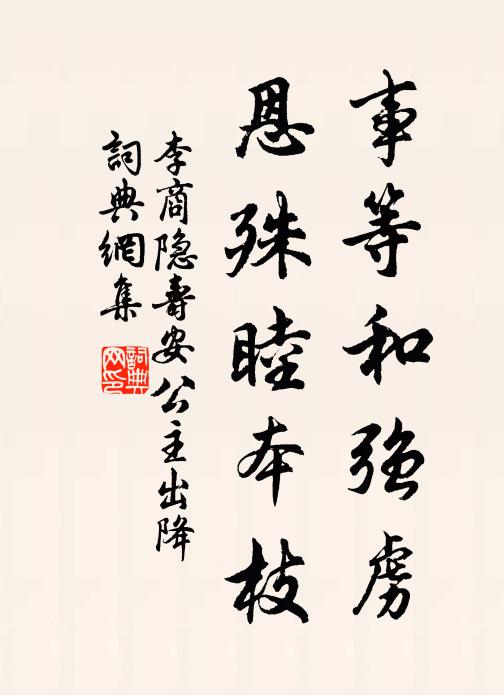 事等和強虜
恩殊睦本枝
李商隐壽安公主出降
詞典網集
詞典网印